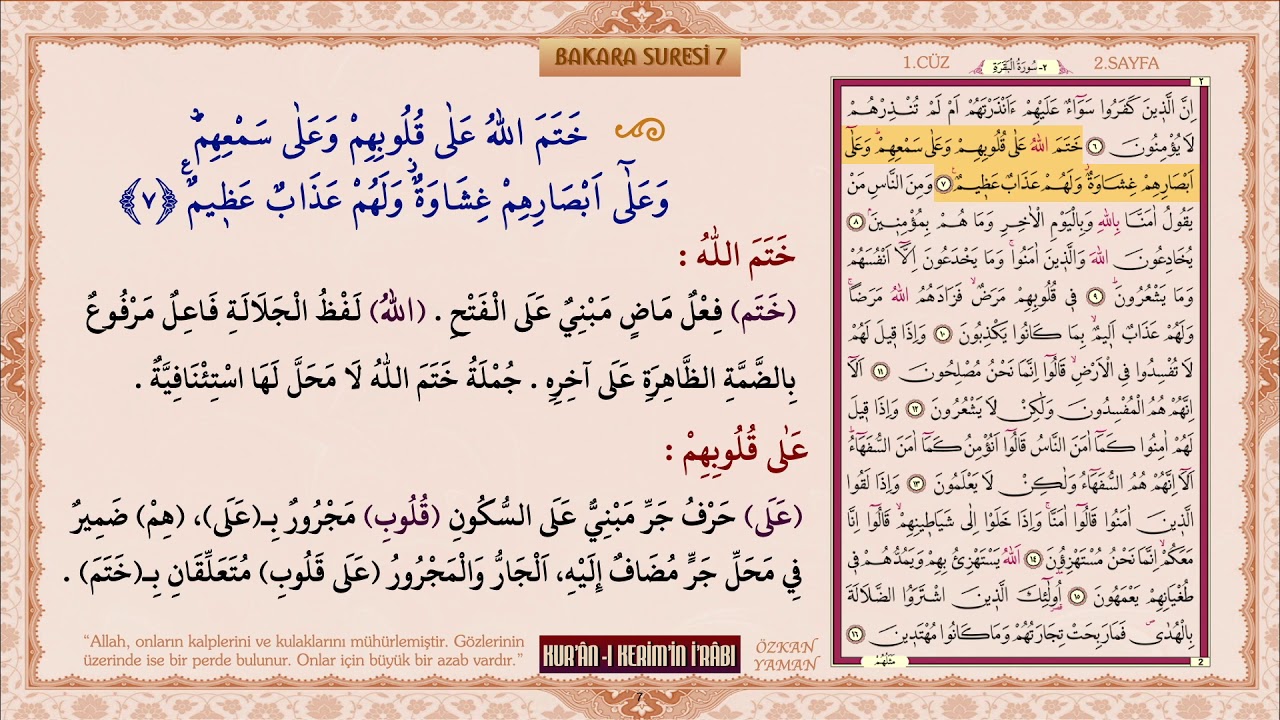 BAKARA SURESİ 7
خَتَمَ اللّٰهُ عَلٰى قُلُوبِهِمْ وَعَلٰى سَمْعِهِمْۜ
وَعَلٰٓى اَبْصَارِهِمْ غِشَاوَةٌۘ وَلَهُمْ عَذَابٌ عَظ۪يمٌ۟ ﴿٧﴾
خَتَمَ اللّٰهُ :
(خَتَم) فِعْلٌ مَاضٍ مَبْنِيٌ عَلَى الْفَتْحِ . (اللّٰهُ) لَفْظُ الْجَلَالَةِ فَاعِلٌ مَرْفُوعٌ
بِالضَّمَّةِ الظَّاهِرَةِ عَلَى آخِرِهِ . جُمْلَةُ خَتَمَ اللّٰهُ لَا مَحَلَّ لَهَا اسْتِئْنَافِيَّةٌ .
عَلٰى قُلُوبِهِمْ :
(عَلَى) حَرْفُ جَرٍّ مَبْنِيٌّ عَلَى السُّكُونِ (قُلُوبِ) مَجْرُورٌ بِـ(عَلَى)، (هِمْ) ضَمِيرٌ
فِي مَحَلِّ جَرٍّ مُضَافٌ إِلَيْهِ، اَلْجَارُّ وَالْمَجْرُورُ (عَلَى قَلُوبِ) مُتَعَلِّقَانِ بِـ(خَتَمَ) .
“Allah, onların kalplerini ve kulaklarını mühürlemiştir. Gözlerinin
üzerinde ise bir perde bulunur. Onlar için büyük bir azab vardır.”
KUR'ÂN -I KERİM'İN İ'RÂBI
ÖZKAN
YAMAN
7
1.CÜZ
٢- سُورَةُ الْبَقَرَةِ
2.SAYFA
٢
اِنَّ الَّذ۪ينَ كَفَرُوا سَوَٓاءٌ عَلَيْهِمْ ءَاَنْذَرْتَهُمْ اَمْ لَمْ تُنْذِرْهُمْ
لَا يُؤْمِنُونَ ٦ خَتَمَ اللّٰهُ عَلٰى قُلُوبِهِمْ وَعَلٰى سَمْعِهِمْۜ وَعَلٰٓى
اَبْصَارِهِمْ غِشَاوَةٌۘ وَلَهُمْ عَذَابٌ عَظ۪يمٌ۟ ٧ وَمِنَ النَّاسِ مَنْ
يَقُولُ اٰمَنَّا بِاللّٰهِ وَبِالْيَوْمِ الْاٰخِرِ وَمَا هُمْ بِمُؤْمِن۪ينَۢ ٨
يُخَادِعُونَ اللّٰهَ وَالَّذ۪ينَ اٰمَنُواۚ وَمَا يَخْدَعُونَ اِلَّٓا اَنْفُسَهُمْ
وَمَا يَشْعُرُونَۜ ٩ ف۪ي قُلُوبِهِمْ مَرَضٌۙ فَزَادَهُمُ اللّٰهُ مَرَضًاۚ
وَلَهُمْ عَذَابٌ اَل۪يمٌۙ بِمَا كَانُوا يَكْذِبُونَ ١٠ وَاِذَا ق۪يلَ لَهُمْ
لَا تُفْسِدُوا فِي الْاَرْضِۙ قَالُٓوا اِنَّمَا نَحْنُ مُصْلِحُونَ ١١ اَلَٓا
اِنَّهُمْ هُمُ الْمُفْسِدُونَ وَلٰكِنْ لَا يَشْعُرُونَ ١٢ وَاِذَا ق۪يلَ
لَهُمْ اٰمِنُوا كَمَٓا اٰمَنَ النَّاسُ قَالُٓوا اَنُؤْمِنُ كَمَٓا اٰمَنَ السُّفَهَٓاءُۜ
اَلَٓا اِنَّهُمْ هُمُ السُّفَهَٓاءُ وَلٰكِنْ لَا يَعْلَمُونَ ١٣ وَاِذَا لَقُوا
الَّذ۪ينَ اٰمَنُوا قَالُٓوا اٰمَنَّاۚ وَاِذَا خَلَوْا اِلٰى شَيَاط۪ينِهِمْۙ قَالُٓوا اِنَّا
مَعَكُمْۙ اِنَّمَا نَحْنُ مُسْتَهْزِؤُ۫نَ ١٤ اَللّٰهُ يَسْتَهْزِئُ بِهِمْ وَيَمُدُّهُمْ ف۪ي
طُغْيَانِهِمْ يَعْمَهُونَ ١٥ اُو۬لٰٓئِكَ الَّذ۪ينَ اشْتَرَوُا الضَّلَالَةَ
بِالْهُدٰىۖ فَمَا رَبِحَتْ تِجَارَتُهُمْ وَمَا كَانُوا مُهْتَد۪ينَ ١٦
مَثَلُهُمْ
2